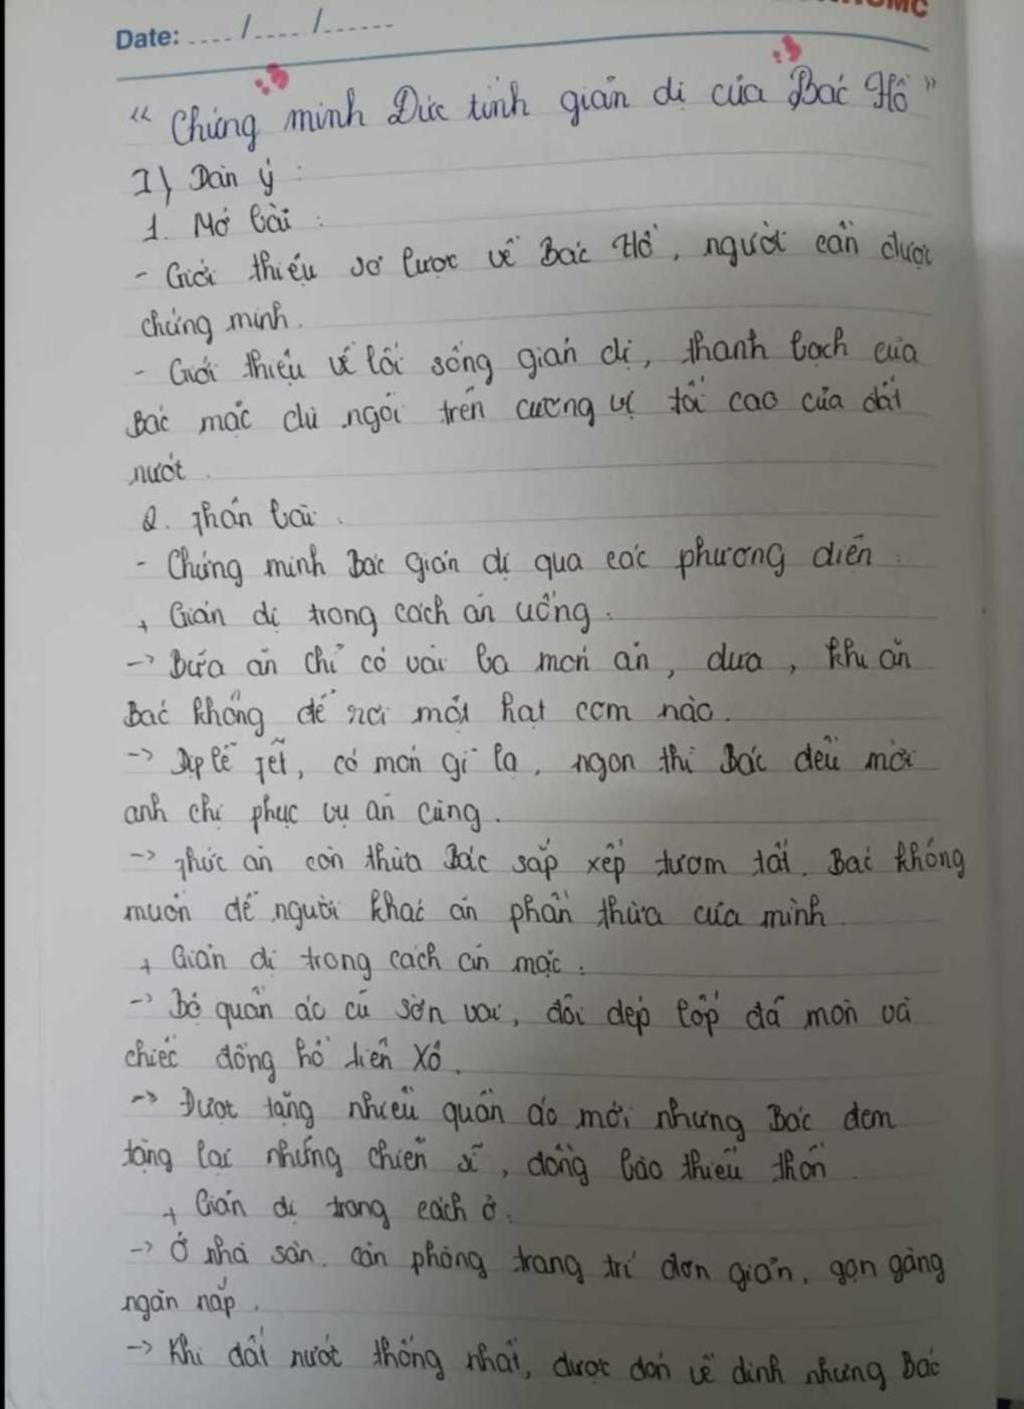 Date: .... / .... / ......
“ Chứng minh Đức tính giản dị của Bác Hồ ”
I) Dàn ý :
1. Mở bài :
- Giới thiệu sơ lược về Bác Hồ, người cần được
chứng minh.
- Giới thiệu về lối sống giản dị, thanh bạch của
Bác mặc dù ngồi trên cương vị tối cao của đất
nước.
2. Thân bài.
- Chứng minh Bác giản dị qua các phương diện :
+ Giản dị trong cách ăn uống.
-> Bữa ăn chỉ có vài ba món ăn, dưa, khi ăn
Bác không để rơi một hạt cơm nào.
-> Dịp lễ Tết, có món gì lạ, ngon thì Bác đều mời
anh chị phục vụ ăn cùng.
-> Thức ăn còn thừa Bác sắp xếp tươm tất. Bác không
muốn để người khác ăn phần thừa của mình.
+ Giản dị trong cách ăn mặc :
-> Bộ quần áo cũ sờn vai, đôi dép lốp đã mòn và
chiếc đồng hồ Liên Xô.
-> Được tặng nhiều quần áo mới nhưng Bác đem
tặng lại những chiến sĩ, đồng bào thiếu thốn.
+ Giản dị trong cách ở.
-> Ở nhà sàn. căn phòng trang trí đơn giản, gọn gàng
ngăn nắp.
-> Khi đất nước thống nhất, được đón về dinh nhưng Bác